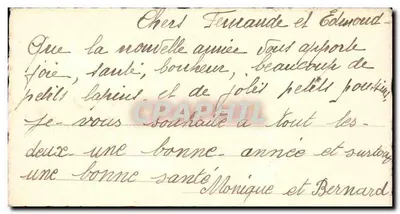 Chers Fernande et Edmond-
Que la nouvelle année vous apporte
joie, santé, bonheur, beaucoup de
petits lapins et de jolis petits poussins,
je vous souhaite à tout les-
deux une bonne année et surtout
une bonne santé
Monique et Bernard